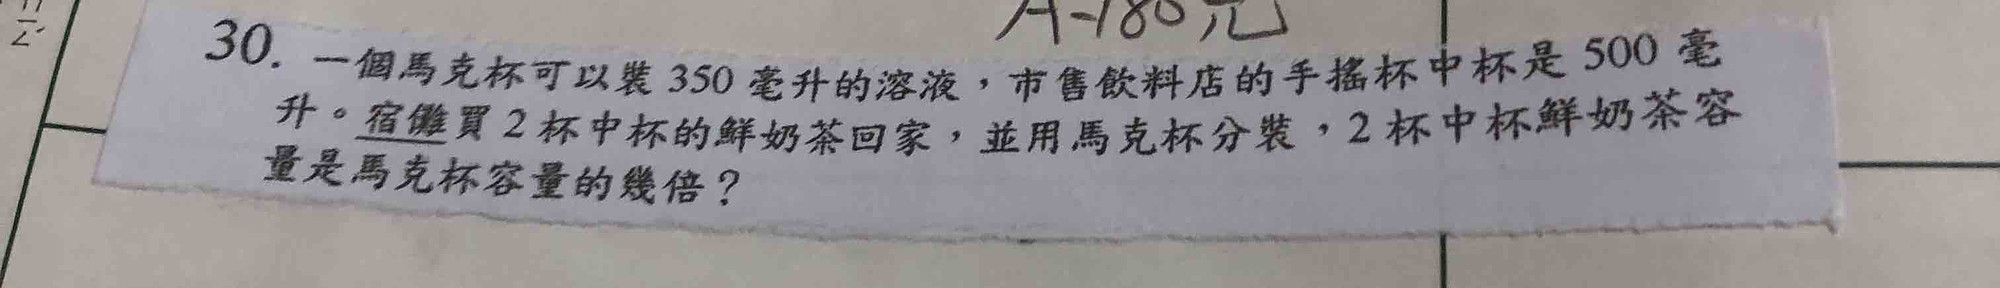 A-180元
30. 一個馬克杯可以裝 350 毫升的溶液，市售飲料店的手搖杯中杯是 500 毫
升。宿儺買 2 杯中杯的鮮奶茶回家，並用馬克杯分裝，2 杯中杯鮮奶茶容
量是馬克杯容量的幾倍？